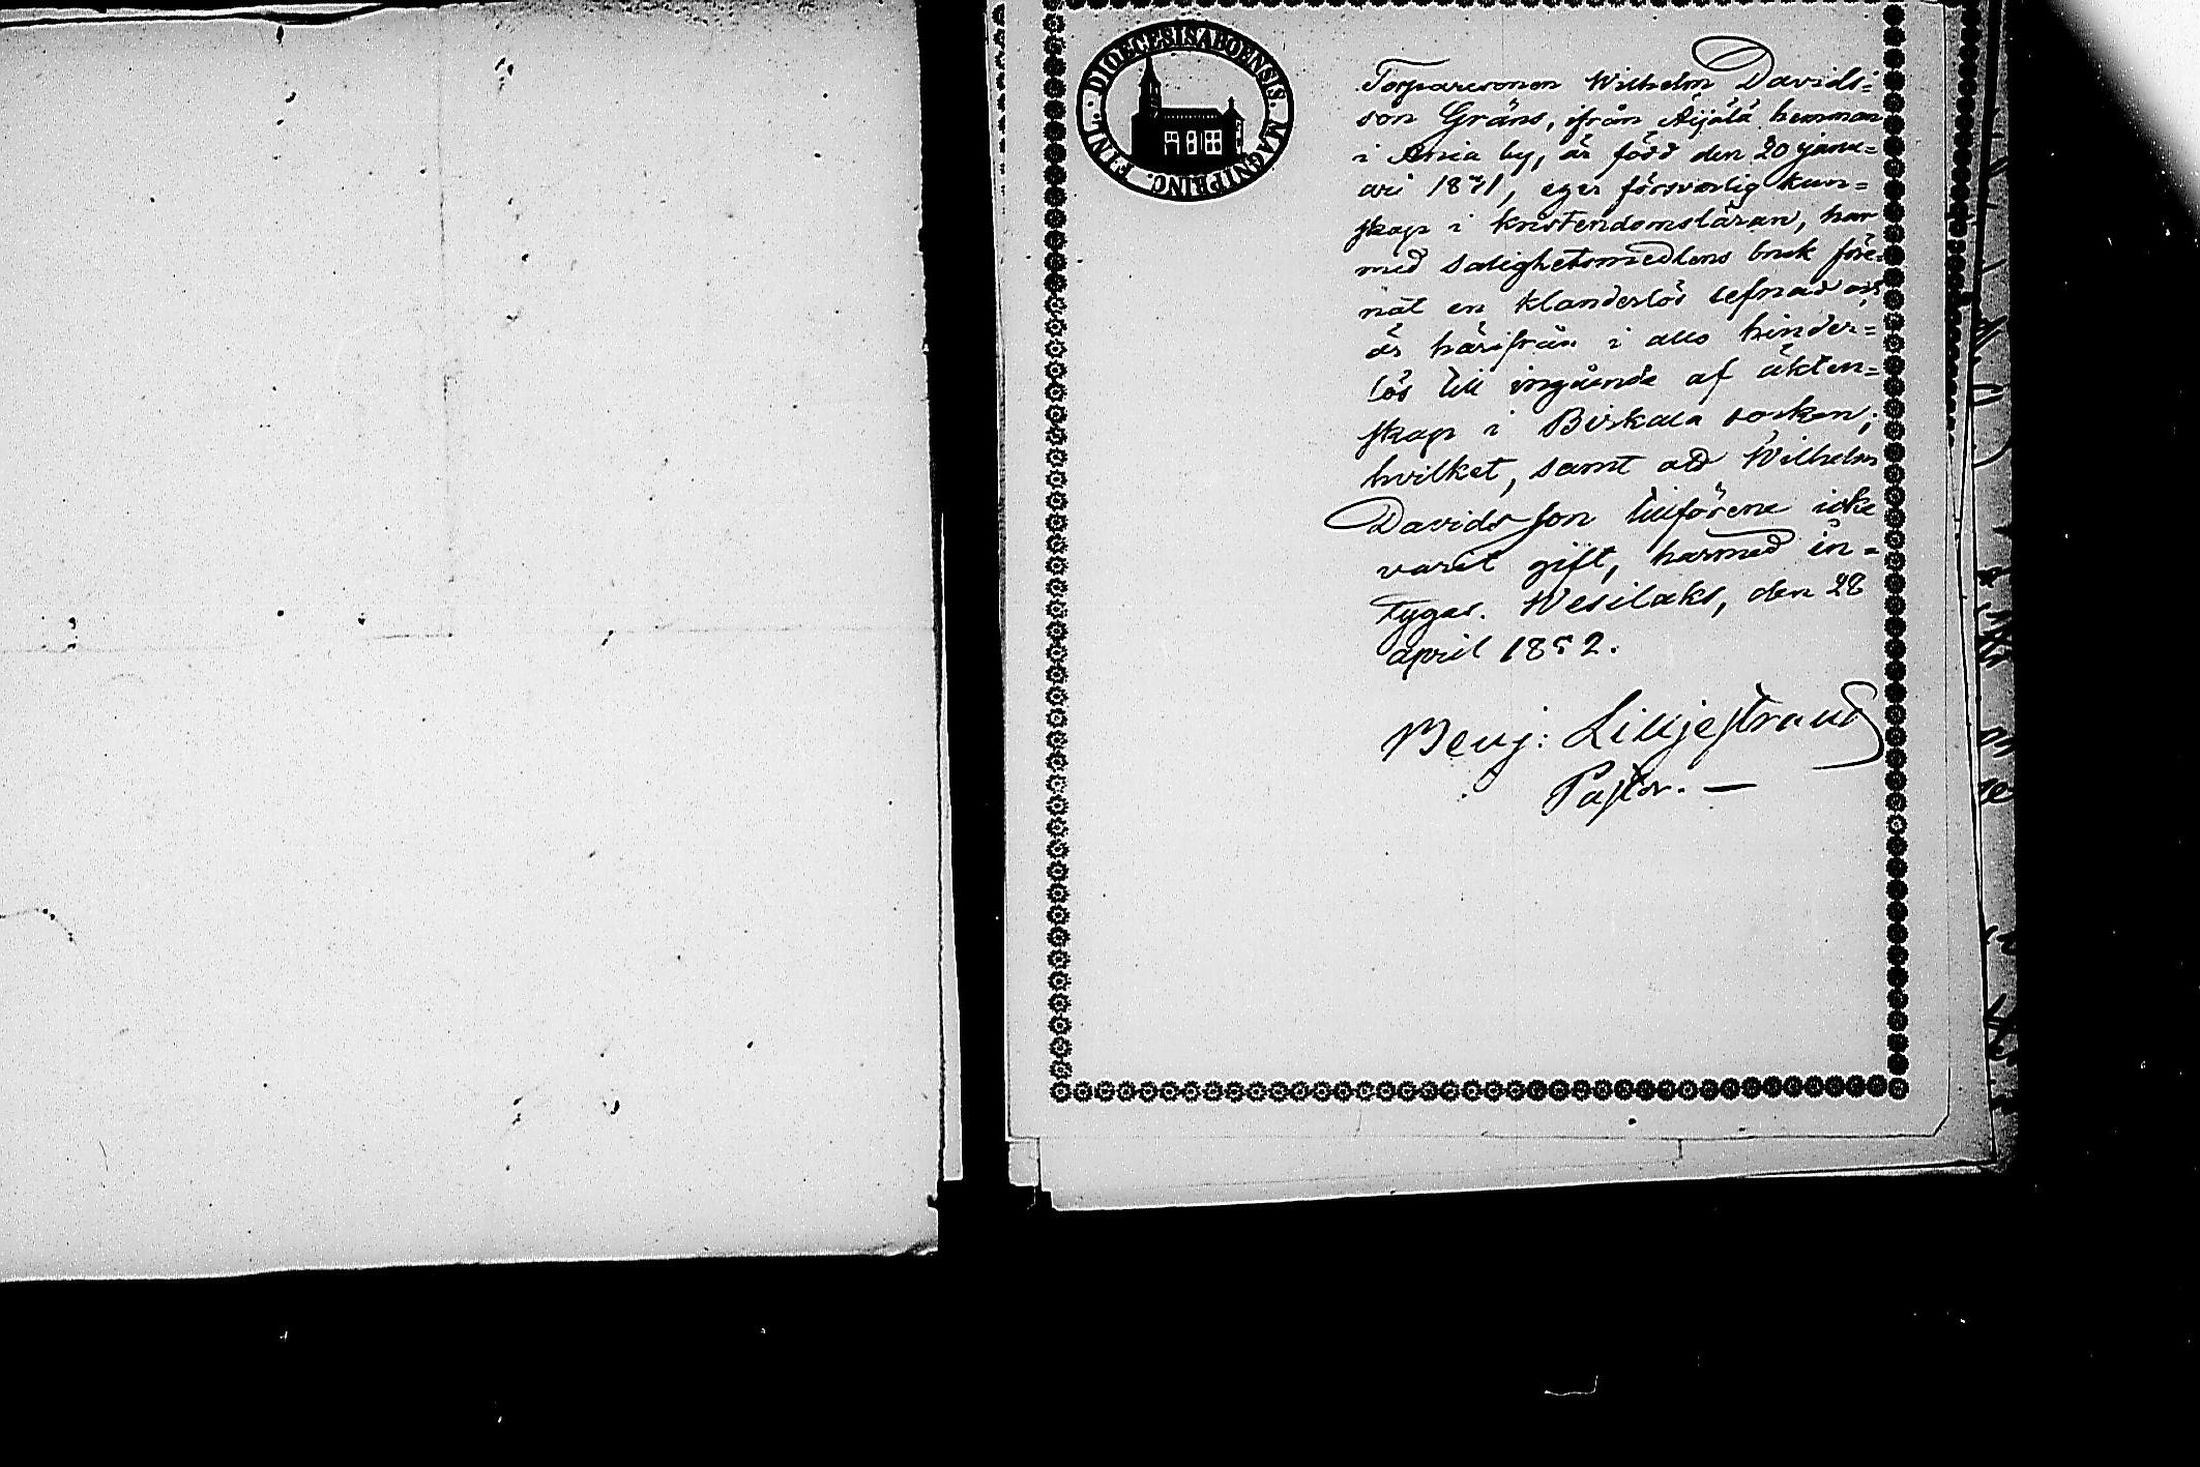 DIOECESIS ABOENSIS. MAGNI PRINC. FINL.
Torparesonen Wilhelm Davids=
son Gräns, ifrån Äijälä hemman
i Ania by, är född den 20 janu=
ari 1871, eger försvarlig kun=
skap i kristendomsläran, har
med salighetsmedlens bruk före=
nat en klanderlös lefnad och
är härifrån i allo hinder=
lös till ingående af äkten=
skap i Birkala socken;
hvilket, samt att Wilhelm
Davidsson tillförene icke
varit gift, härmed in=
tygas. Wesilaks, den 28
april 1892.
Benj: Lilljestrand
Pastor. —